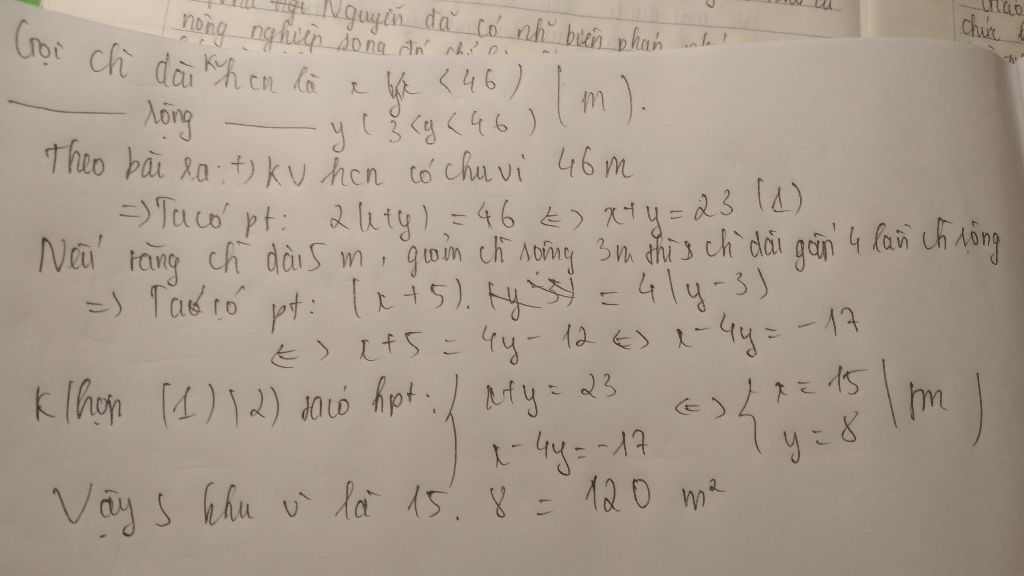 Nguyễn đã có nh buồn phan
nông nghiệp song đó
chức
Gọi chì dài kv hcn là x (x < 46) (m).
rộng y (3 < y < 46)
Theo bài ra: +) KV hcn có chu vi 46 m
=> Ta có pt: 2(x+y) = 46 <=> x+y = 23 (1)
Nếu răng chì dài 5 m, giảm chì rông 3m thì s chì dài gấn 4 lần ch rộng
=> Ta có pt: (x+5). = 4(y-3)
<=> x+5 = 4y - 12 <=> x - 4y = -17
K/hợp (1) (2) ta có hpt: { x+y = 23 <=> { x = 15 (m)
x - 4y = -17 y = 8
Vậy S khu vì là 15. 8 = 120 m²